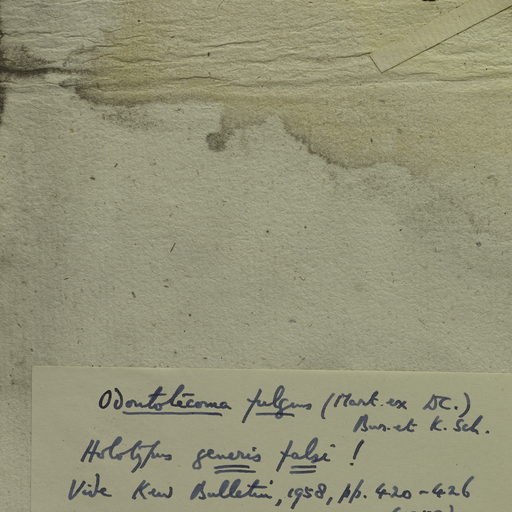 Odontotecoma fulgens (Mart. ex DC.)
Bur. et K. Sch.
Holotypus generis falsi !
Vide Kew Bulletin, 1958, pp. 420-426